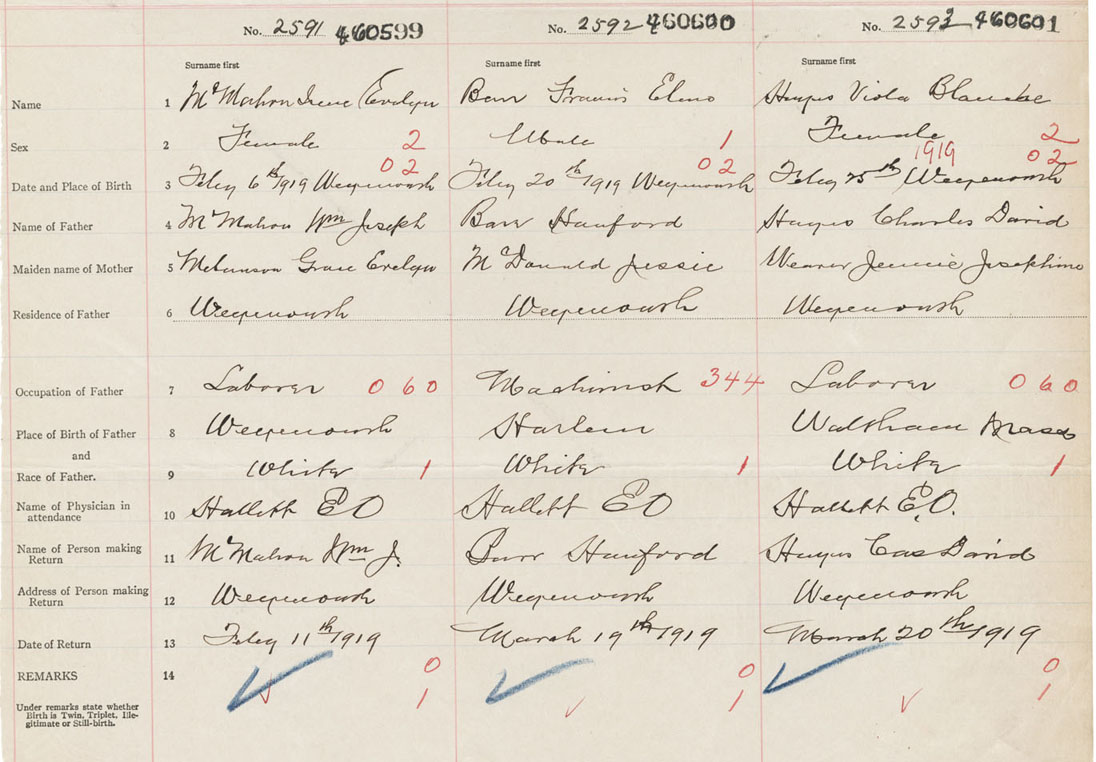 No. 2591 460599 No. 2592 460600 No. 2593 460601
Surname first Surname first Surname first
Name 1 McMahon Irene Evelyn Barr Francis Elmo Hayes Viola Blanche
Sex 2 Female 2 Male 1 Female 2
02 02 1919 02
Date and Place of Birth 3 Feby 6th 1919 Weymouth Feby 20th 1919 Weymouth Feby 25th Weymouth
Name of Father 4 McMahon Wm Joseph Barr Hanford Hayes Charles David
Maiden name of Mother 5 Grace Evelyn McDonald Jessie Weaver Jennie Josephine
Residence of Father 6 Weymouth Weymouth Weymouth
Occupation of Father 7 Laborer 060 Machinist 344 Laborer 060
Place of Birth of Father 8 Weymouth Harlem Waltham Mass
and
Race of Father. 9 White 1 White 1 White 1
Name of Physician in
attendance 10 Hallett E O Hallett E O Hallett E.O.
Name of Person making
Return 11 McMahon Wm J. Barr Hanford Hayes Cas David
Address of Person making
Return 12 Weymouth Weymouth Weymouth
Date of Return 13 Feby 11th 1919 March 19th 1919 March 20th 1919
REMARKS 14 0 0 0
Under remarks state whether
Birth is Twin, Triplet, Ille-
gitimate or Still-birth.
1 1 1